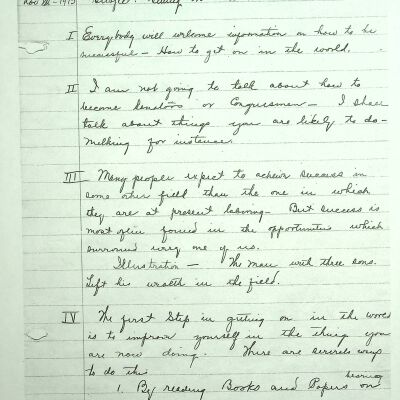 Nov
I Everybody will welcome information on how to be
successful - How to get on in the world.
II I am not going to talk about how to
become Senators or Congressmen - I shall
talk about things you are likely to do -
Melking for instance.
III Many people expect to achieve success in
some other field than the one in which
they are at present laboring - But success is
most often found in the opportunities which
surround every one of us.
Illustration - The man with three sons.
Left his wealth in the field.
IV The first Step in getting on in the world
is to improve yourself in the thing you
are now doing. There are several ways
to do this
bearing
1. By reading Books and Papers on